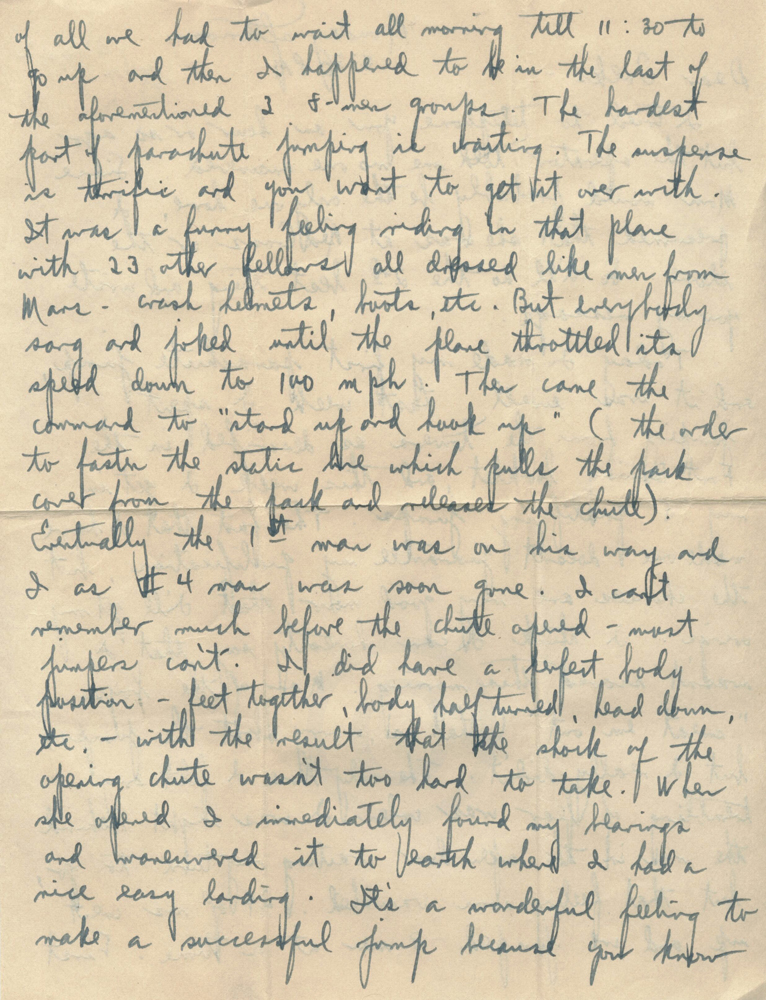 of all we had to wait all morning till 11:30 to
go up and then I happened to be in the last of
the aforementioned 3 8-men groups. The hardest
part of parachute jumping is waiting. The suspense
is terrific and you want to get it over with.
It was a funny feeling riding in that plane
with 23 other fellows all dressed like men from
Mars - crash helmets, boots, etc. But everybody
sang and joked until the plane throttled its
speed down to 100 mph. Then came the
command to "stand up and hook up" ( the order
to fasten the static line which pulls the pack
cover from the pack and releases the chute).
Eventually the 1st man was on his way and
I as #4 man was soon gone. I can't
remember much before the chute opened - most
jumpers can't. I did have a perfect body
position - feet together, body half turned, head down,
etc. - with the result that the shock of the
opening chute wasn't too hard to take. When
she opened I immediately found my bearings
and maneuvered it to earth where I had a
nice easy landing. It's a wonderful feeling to
make a successful jump because you know